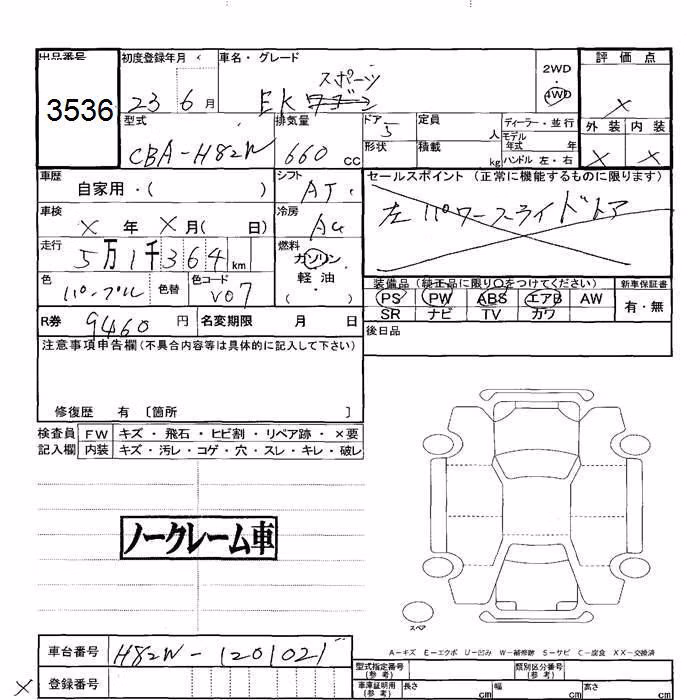 出品番号 初度登録年月 車名・グレード 2WD 評価点
3536 23 6月 スポーツ 4WD X
EK ワゴン
型式 排気量 ドア 定員 ディーラー・並行 外装 内装
CBA-H82W 660 cc 5 人 モデル年式 年 X X
形状 積載 kg ハンドル 左・右
車歴 シフト セールスポイント (正常に機能するものに限ります)
自家用・( ) AT 左パワースライドドア
車検 冷房
X 年 X 月( 日) AC
走行 燃料
5万1千364 km ガソリン
軽油
・( )
色 色替 色コード 装備品 (純正品に限り○をつけてください) 新車保証書
パープル V07 PS PW ABS エアB AW 有・無
SR ナビ TV カワ
R券 9460 円 名変期限 月 日 後日品
注意事項申告欄(不具合内容等は具体的に記入して下さい)
修復歴 有 〔箇所 〕
検査員 FW キズ・飛石・ヒビ割・リペア跡・×要
記入欄 内装 キズ・汚レ・コゲ・穴・スレ・キレ・破レ
ノークレーム車
スペア
A-キズ E-エクボ U-凹み W-補修跡 S-サビ C-腐食 XX-交換済
車台番号 H82W-1201021
型式指定番号(参考) 類別区分番号(参考)
X 登録番号
車庫証明用(参考) 長さ cm 幅 cm 高さ cm